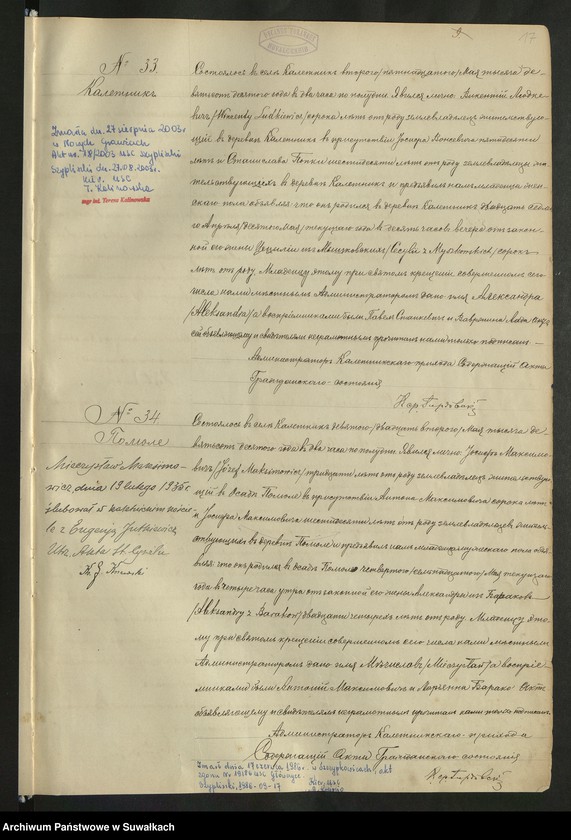 17
№ 33.
Калетникъ
Zmarła dn. 27 sierpnia 2003 r
Akt nr. 18/2003 USC Szypliszki
Szypliszki dn. 27.08.2003 r.
Kier. USC
T. Kalinowska
mgr inż. Teresa Kalinowska
Состоялось въ селѣ Калетникъ второго/пятнадцатаго/Мая тысяча де-
вятьсотъ десятого года въ два часа по полудни. Явился лично Викентій Людке-
вичъ /Wincenty Ludkiewicz/ сорока лѣтъ отъ роду землевладѣлецъ жительствую-
щій въ деревнѣ Калетникъ въ присутствіи Іосифа пятидесяти
лѣтъ и Станислава шестидесяти лѣтъ отъ роду землевладѣльцевъ жи-
тельствующихъ въ деревнѣ Калетникъ и предъявилъ намъ младенца жен-
скаго пола объявляя что онъ родился въ деревнѣ Калетникъ двадцать седьма-
го Апрѣля/десятого Мая/текущаго года въ десять часовъ вечера отъ закон-
ной его жены Цециліи изъ сорокъ
лѣтъ отъ роду. Младенцу этому при святомъ крещеніи совершенномъ сего
числа нами мѣстнымъ Администраторомъ дано имя Александра
/Aleksandra/ а воспріемниками были Павелъ Станкевичъ и
объявляющему и свидѣтелямъ неграмотнымъ прочитанъ нами только подписанъ
Администраторъ Калетникскаго прихода Содержащій Акты
Гражданскаго состоянія
№ 34
Помоле
dnia 19 lutego 1935 r.
ślubował w kościele
z Eugenją
Состоялось въ селѣ Калетникъ девятаго/двадцать второго/Мая тысяча де-
вятьсотъ десятого года въ два часа по полудни. Явился лично Іосифъ Максимо-
вичъ /Józef Maksimowicz/ тридцати лѣтъ отъ роду землевладѣлецъ жительствую-
щій въ Осадѣ Помоле въ присутствіи Антона Максимовича сорока лѣтъ
и Іосифа Максимовича шестидесяти лѣтъ отъ роду землевладѣльцевъ жительс-
твующихъ въ деревнѣ Помоле и предъявилъ намъ младенца мужескаго пола объя-
вляя что онъ родился въ осадѣ Помоле четвертаго/семнадцатаго/Мая текущаго
года въ четыре часа утра отъ законной его жены Александры изъ Бараковъ
/Aleksandry z Baraków/ двадцати четырехъ лѣтъ отъ роду. Младенцу это-
му при святомъ крещеніи совершенномъ сего числа нами мѣстнымъ
Администраторомъ дано имя Мечиславъ /Mieczysław/ а воспріе-
мниками были Антоній Максимовичъ и Барако. Актъ
объявляющему и свидѣтелямъ неграмотнымъ прочитанъ нами только подписанъ
Администраторъ Калетникскаго прихода
Содержащій Акты Гражданскаго состоянія
Zmarł dnia 17 czerwca 1986 r. w Szczypkowicach, akt
zgonu nr USC
Szypliszki, 1986-09-17
Kier. USC
Archiwum Państwowe w Suwałkach